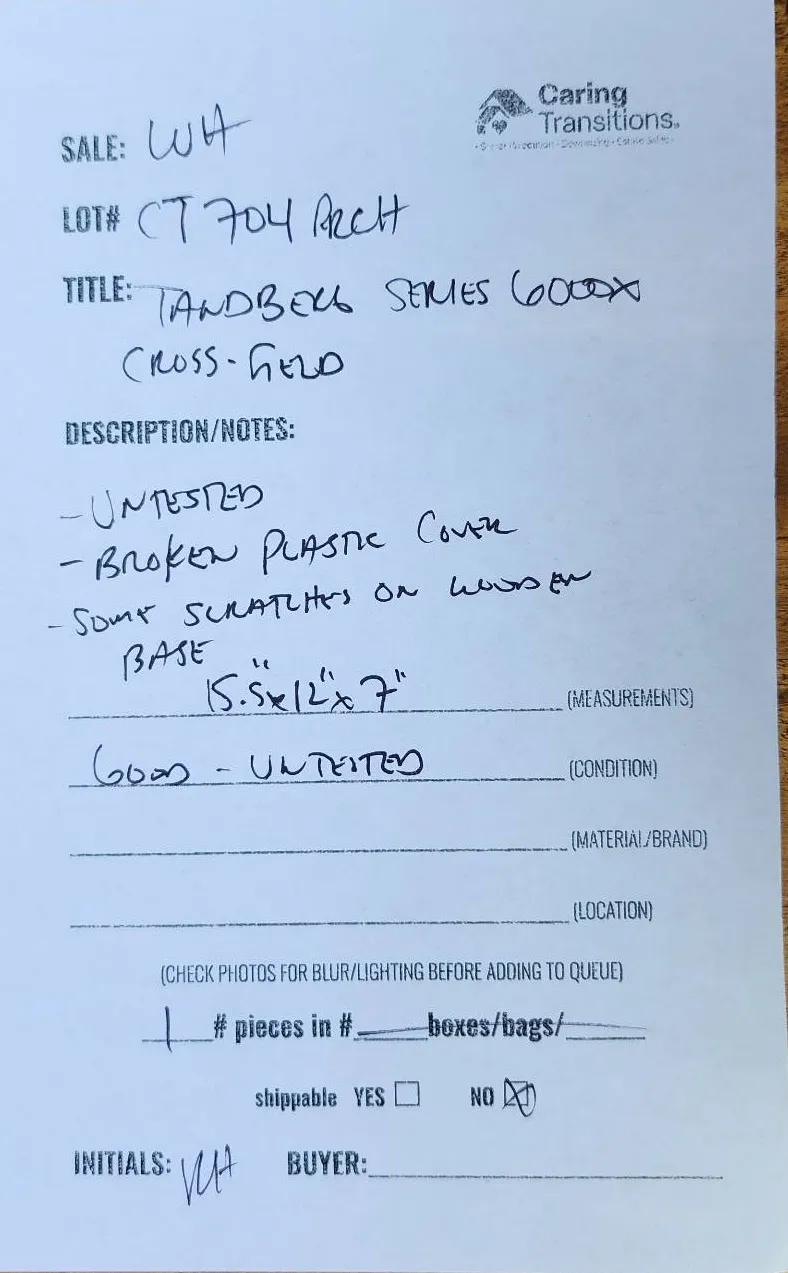 Caring
Transitions
SALE: WH
LOT# CT 704 ARCH
TITLE: TANDBERG SERIES 6000X
CROSS-FIELD
DESCRIPTION/NOTES:
- UNTESTED
- BROKEN PLASTIC COVER
- SOME SCRATCHES ON WOODEN
BASE
15.5"x12"x7" (MEASUREMENTS)
GOOD - UNTESTED (CONDITION)
(MATERIAL/BRAND)
(LOCATION)
(CHECK PHOTOS FOR BLUR/LIGHTING BEFORE ADDING TO QUEUE)
1 # pieces in # boxes/bags/
shippable YES NO
INITIALS: BUYER: